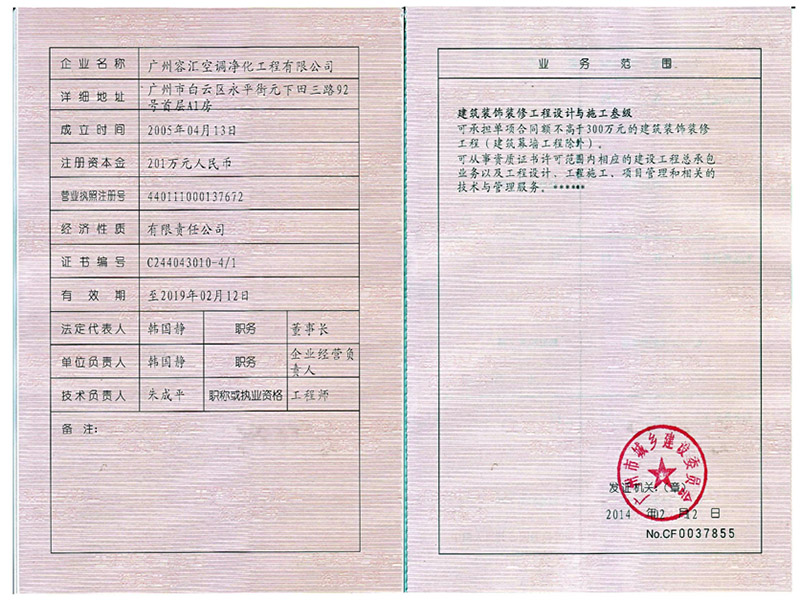 企业名称 广州容汇空调净化工程有限公司
详细地址 广州市白云区永平街元下田三路92
号首层A1房
成立时间 2005年04月13日
注册资本金 201万元人民币
营业执照注册号 440111000137672
经济性质 有限责任公司
证书编号 C244043010-4/1
有效期 至2019年02月12日
法定代表人 韩国静 职务 董事长
单位负责人 韩国静 职务 企业经营负
责人
技术负责人 朱成平 职称或执业资格 工程师
备注:
业务范围
建筑装饰装修工程设计与施工叁级
可承担单项合同额不高于300万元的建筑装饰装修
工程（建筑幕墙工程除外）。
可从事资质证书许可范围内相应的建设工程总承包
业务以及工程设计、工程施工、项目管理和相关的
技术与管理服务。******
广州市城乡建设委员会
发证机关:（章）
2014 年02月12日
No.CF0037855